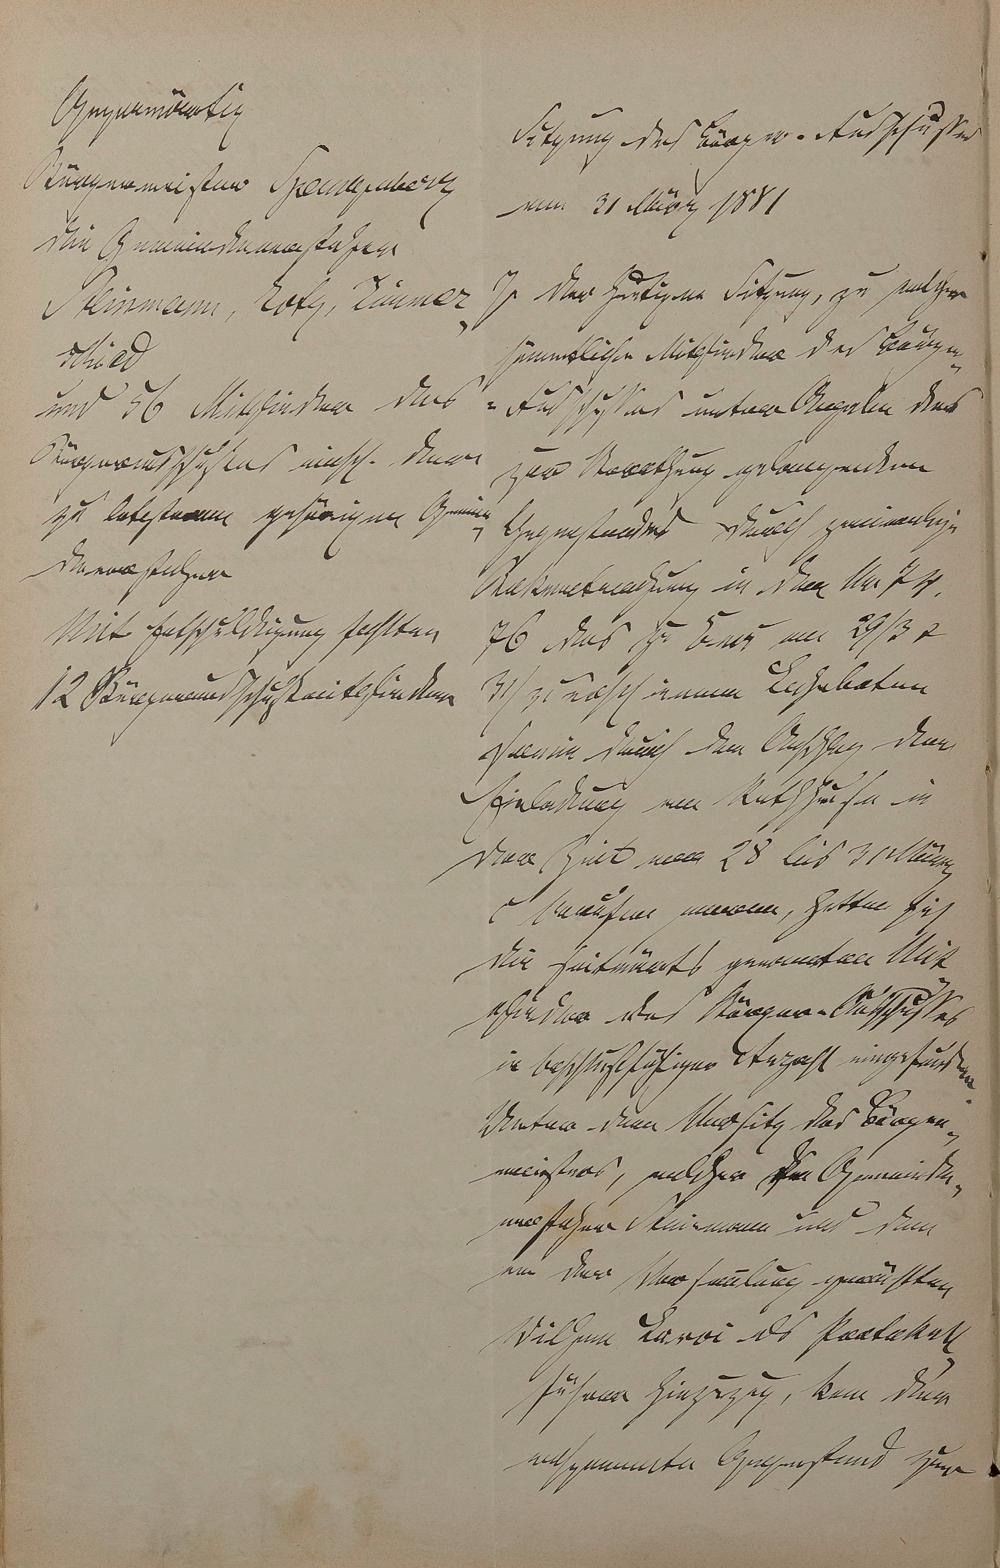 Gegenwärtig
Bürgermeister Spangenberg
die Gemeindevorsteher
Steinmann, Lotz, Zimmer
Wied
und 56 Mitglieder des
Bürgerausschusses einsch. der
zu letzteren gehörigen Gemein„
devorsteher
Mit Entschuldigung fehlten
12 Bürgerausschußmitglieder
Sitzung des Bürger-Ausschusses
vom 31 März 1881
In der heutigen Sitzung, zu welcher
sämmtliche Mitglieder des Bürger„
-Ausschusses unter Angabe des
zur Berathung gelangenden
Gegenstandes durch zweimalige
Bekanntmachung in den Nr. 74
76 des zu Ems am 29/3 &
31/3 erschienenen Lahnboten
sowie durch den Anschlag der
Einladung am Rathhause in
der Zeit vom 28 bis 31 März
c berufen waren, hatten sich
die seitwärts genannten Mit
glieder des Bürger-Ausschusses
in beschlußfähiger Anzahl eingefunden.
Unter dem Vorsitz des Bürger„
meisters, welcher den Gemeinde„
vorsteher Steinmann und den
von der Versammlung gewählten
Wilhelm als Protokoll
führer hinzuzog, kam der
Gegenstand zur